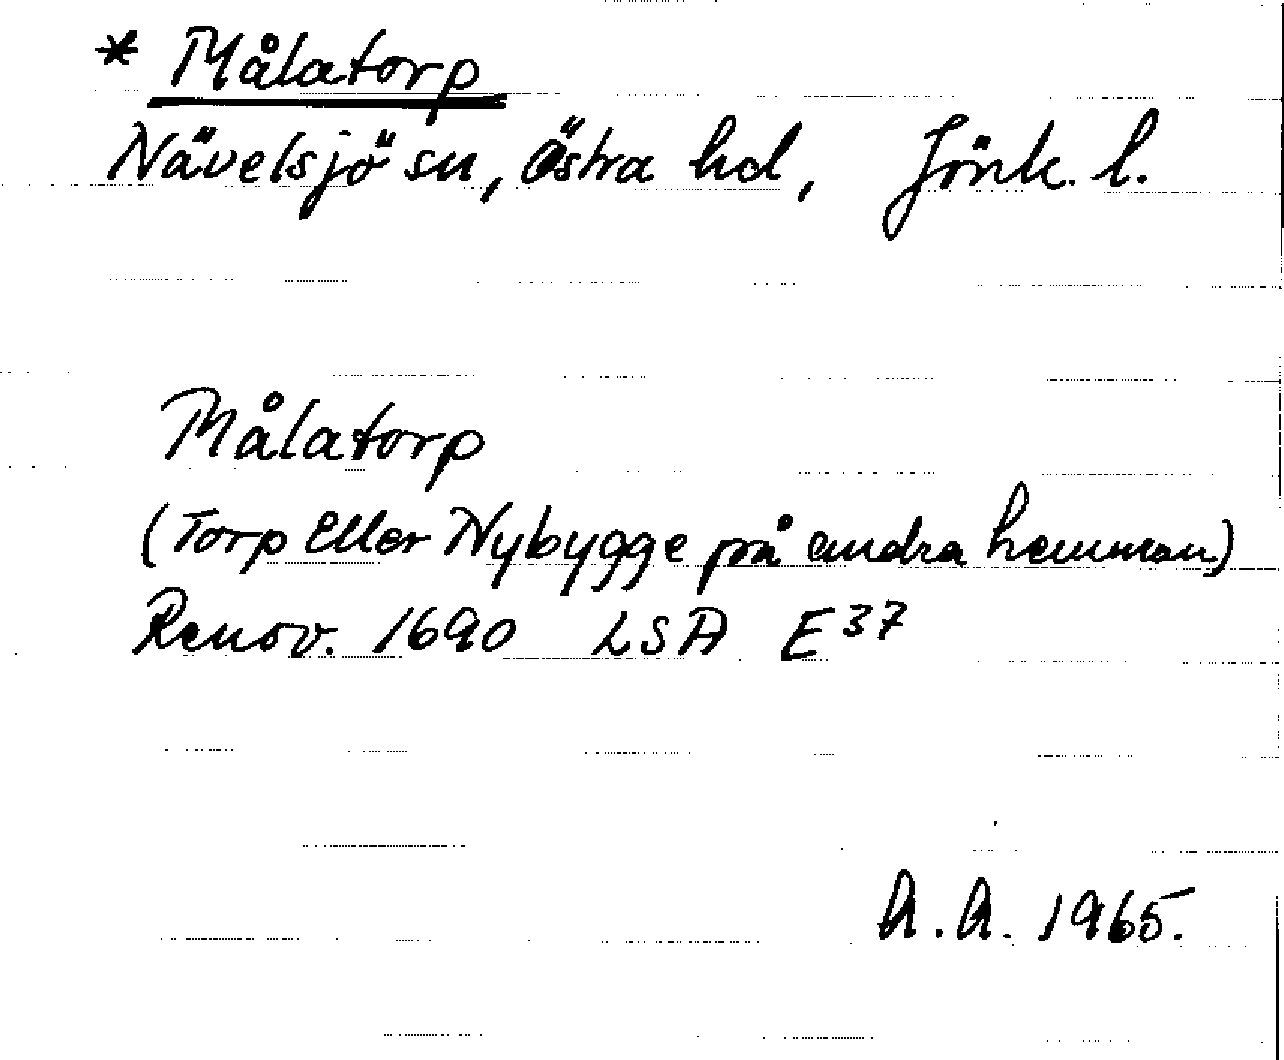 * Målatorp
Nävelsjö sn, Östra hd, Jönk. l.
Målatorp
(Torp Eller Nybygge på andra hemman)
Renov. 1690 LSA E37
A.A. 1965.